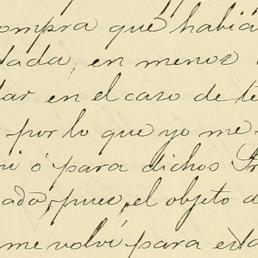 ompra que habia
tada, en menos
dar en el caso de te
por lo que yo me
mi ó para dichos Tr
ado, pues, el objeto d
me volví para esta